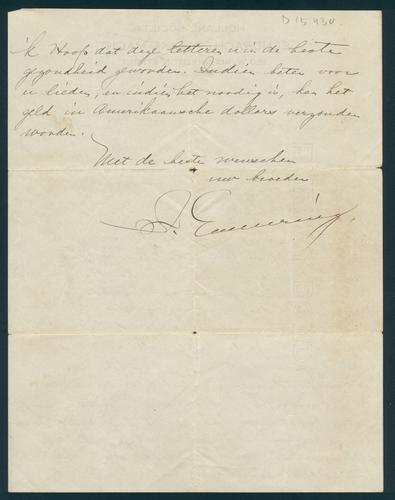 D 15430
'k Hoop dat deze letteren u in de beste
gezondheid geworden. Indien beter voor
u lieden, en indien het noodig is, kan het
geld in Amerikaansche dollars verzonden
worden.
Met de beste wenschen
uw broeder
J. Emmering.